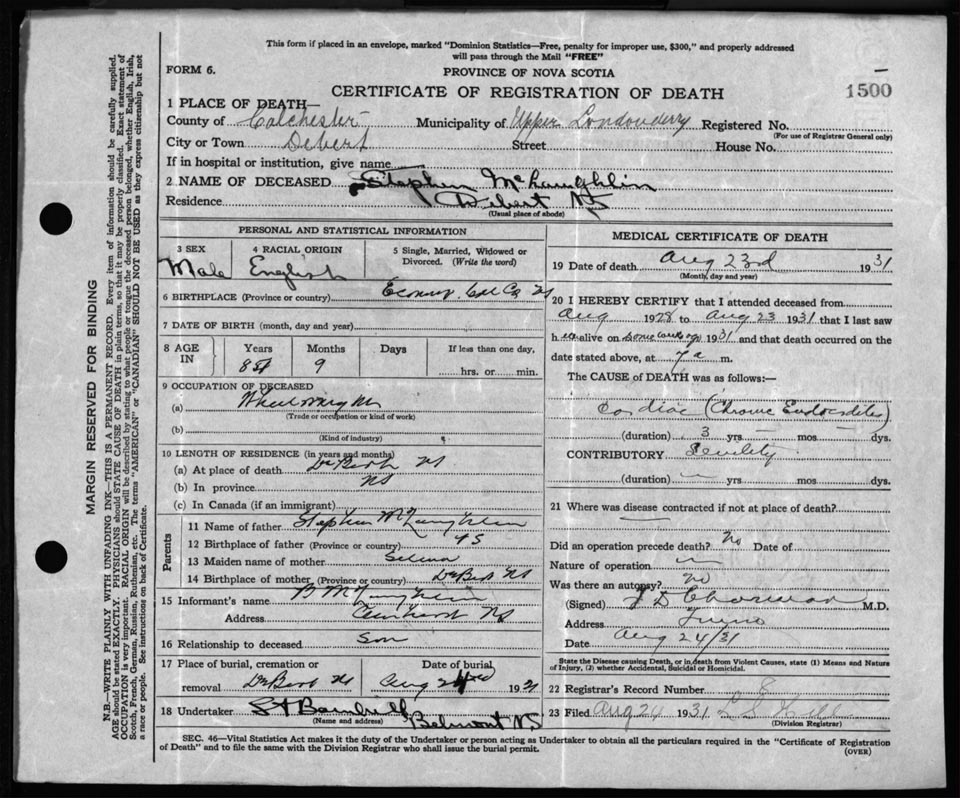 This form if placed in an envelope, marked "Dominion Statistics—Free, penalty for improper use, $300," and properly addressed
will pass through the Mail "FREE"
FORM 6.
PROVINCE OF NOVA SCOTIA
CERTIFICATE OF REGISTRATION OF DEATH
1500
1 PLACE OF DEATH—
County of Colchester Municipality of Upper Londonderry Registered No.
(For use of Registrar General only)
City or Town Debert Street House No.
If in hospital or institution, give name
2 NAME OF DECEASED Stephen McLaughlin
Residence Debert NS
(Usual place of abode)
PERSONAL AND STATISTICAL INFORMATION
3 SEX 4 RACIAL ORIGIN 5 Single, Married, Widowed or
Divorced. (Write the word)
Male English
6 BIRTHPLACE (Province or country) Economy Col Co NS
7 DATE OF BIRTH (month, day and year)
8 AGE IN Years Months Days If less than one day,
9 hrs. or min.
9 OCCUPATION OF DECEASED
(a) Wheelwright
(Trade or occupation or kind of work)
(b)
(Kind of industry)
10 LENGTH OF RESIDENCE (in years and months)
(a) At place of death DeBert NS
(b) In province NS
(c) In Canada (if an immigrant)
Parents
11 Name of father Stephen McLaughlin
12 Birthplace of father (Province or country) NS
13 Maiden name of mother
14 Birthplace of mother (Province or country) DeBert NS
15 Informant's name B McLaughlin
Address Amherst NS
16 Relationship to deceased Son
17 Place of burial, cremation or Date of burial
removal DeBert NS Aug 1931
18 Undertaker Belmont NS
(Name and address)
MEDICAL CERTIFICATE OF DEATH
19 Date of death Aug 23rd 1931
(Month, day and year)
20 I HEREBY CERTIFY that I attended deceased from
Aug 1928 to Aug 23 1931 that I last saw
h alive on 1931 and that death occurred on the
date stated above, at 7 a m.
The CAUSE of DEATH was as follows:—
Cardiac (Chronic Endocarditis)
(duration) 3 yrs — mos — dys.
CONTRIBUTORY Senility
(duration) — yrs mos dys.
21 Where was disease contracted if not at place of death?
Did an operation precede death? No Date of
Nature of operation
Was there an autopsy? no
(Signed) M.D.
Address Truro
Date Aug 24/31
State the Disease causing Death, or in death from Violent Causes, state (1) Means and Nature
of Injury, (2) whether Accidental, Suicidal or Homicidal.
22 Registrar's Record Number 8
23 Filed Aug 24 1931 L S Hill
(Division Registrar)
SEC. 46—Vital Statistics Act makes it the duty of the Undertaker or person acting as Undertaker to obtain all the particulars required in the "Certificate of Registration
of Death" and to file the same with the Division Registrar who shall issue the burial permit.
(OVER)
MARGIN RESERVED FOR BINDING
N.B.—WRITE PLAINLY WITH UNFADING INK—THIS IS A PERMANENT RECORD. Every item of information should be carefully supplied.
AGE should be stated EXACTLY. PHYSICIANS should STATE CAUSE OF DEATH in plain terms, so that it may be properly classified. Exact statement of
OCCUPATION is very important. RACIAL ORIGIN will be described by stating to what people or tongue the deceased person belonged, whether English, Irish,
Scotch, French, German, Russian, Ruthenian, etc. The terms "AMERICAN" or "CANADIAN" SHOULD NOT BE USED as they express citizenship but not
a race or people. See instructions on back of Certificate.